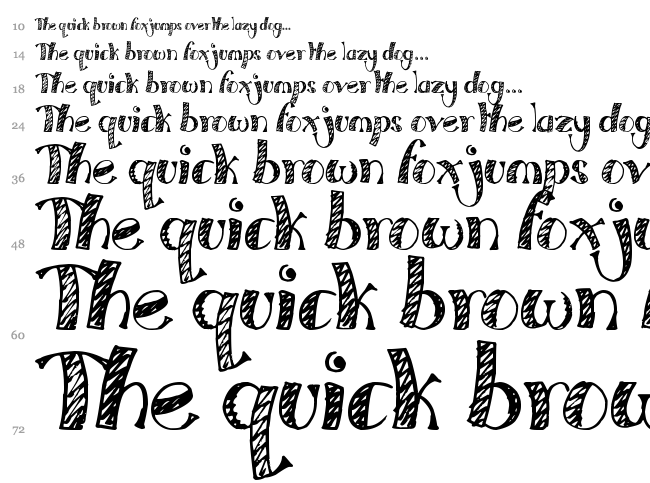 10 The quick brown fox jumps over the lazy dog...
14 The quick brown fox jumps over the lazy dog...
18 The quick brown fox jumps over the lazy dog...
24 The quick brown fox jumps over the lazy dog
36 The quick brown fox jumps ov
48 The quick brown foxju
60 The quick brown
72 The quick brow